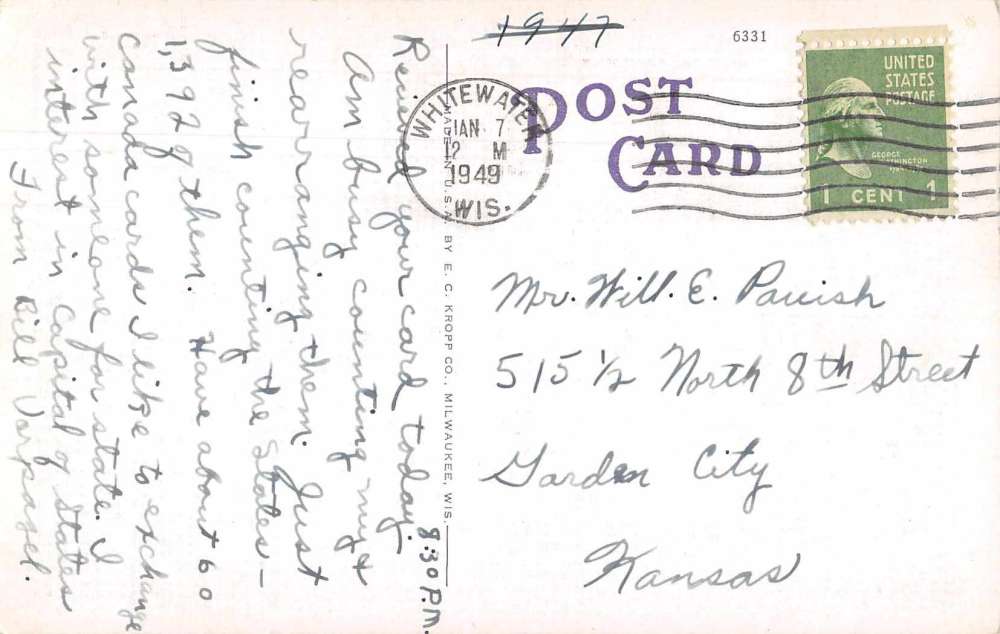 1947
6331
POST
CARD
UNITED
STATES
POSTAGE
GEORGE
WASHINGTON
1 CENT 1
WHITEWATER
JAN 7
12 M
1949
WIS.
8:30 P.M.
Recieved your card today.
Am busy counting my &
rearranging them. Just
finish counting the States –
1,392 of them. Have about 60
canada cards I like to exchange
with someone for state. I
interest in Capital of States
From Bill
MADE IN U.S.A. BY E. C. KROPP CO., MILWAUKEE, WIS.
Mr. Will. E. Parrish
515 ½ North 8th Street
Garden City
Kansas